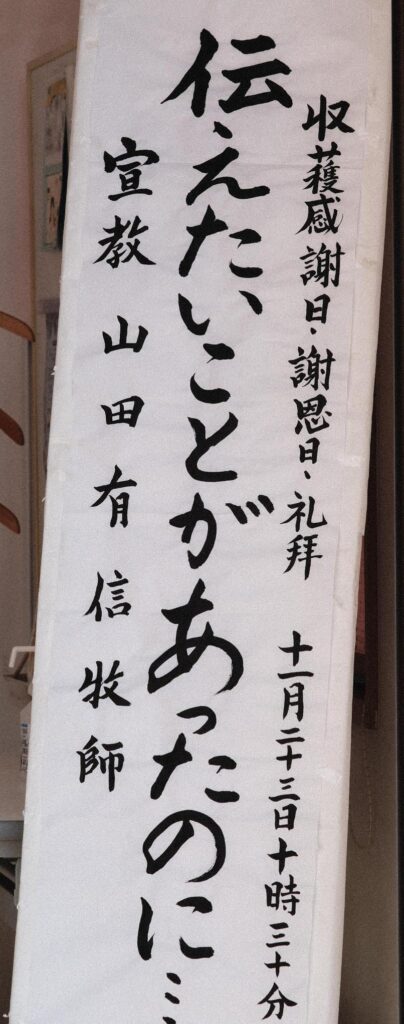 収穫感謝日・謝恩日、礼拝 十一月二十三日十時三十分
伝えたいことがあったのに…
宣教 山田有信牧師